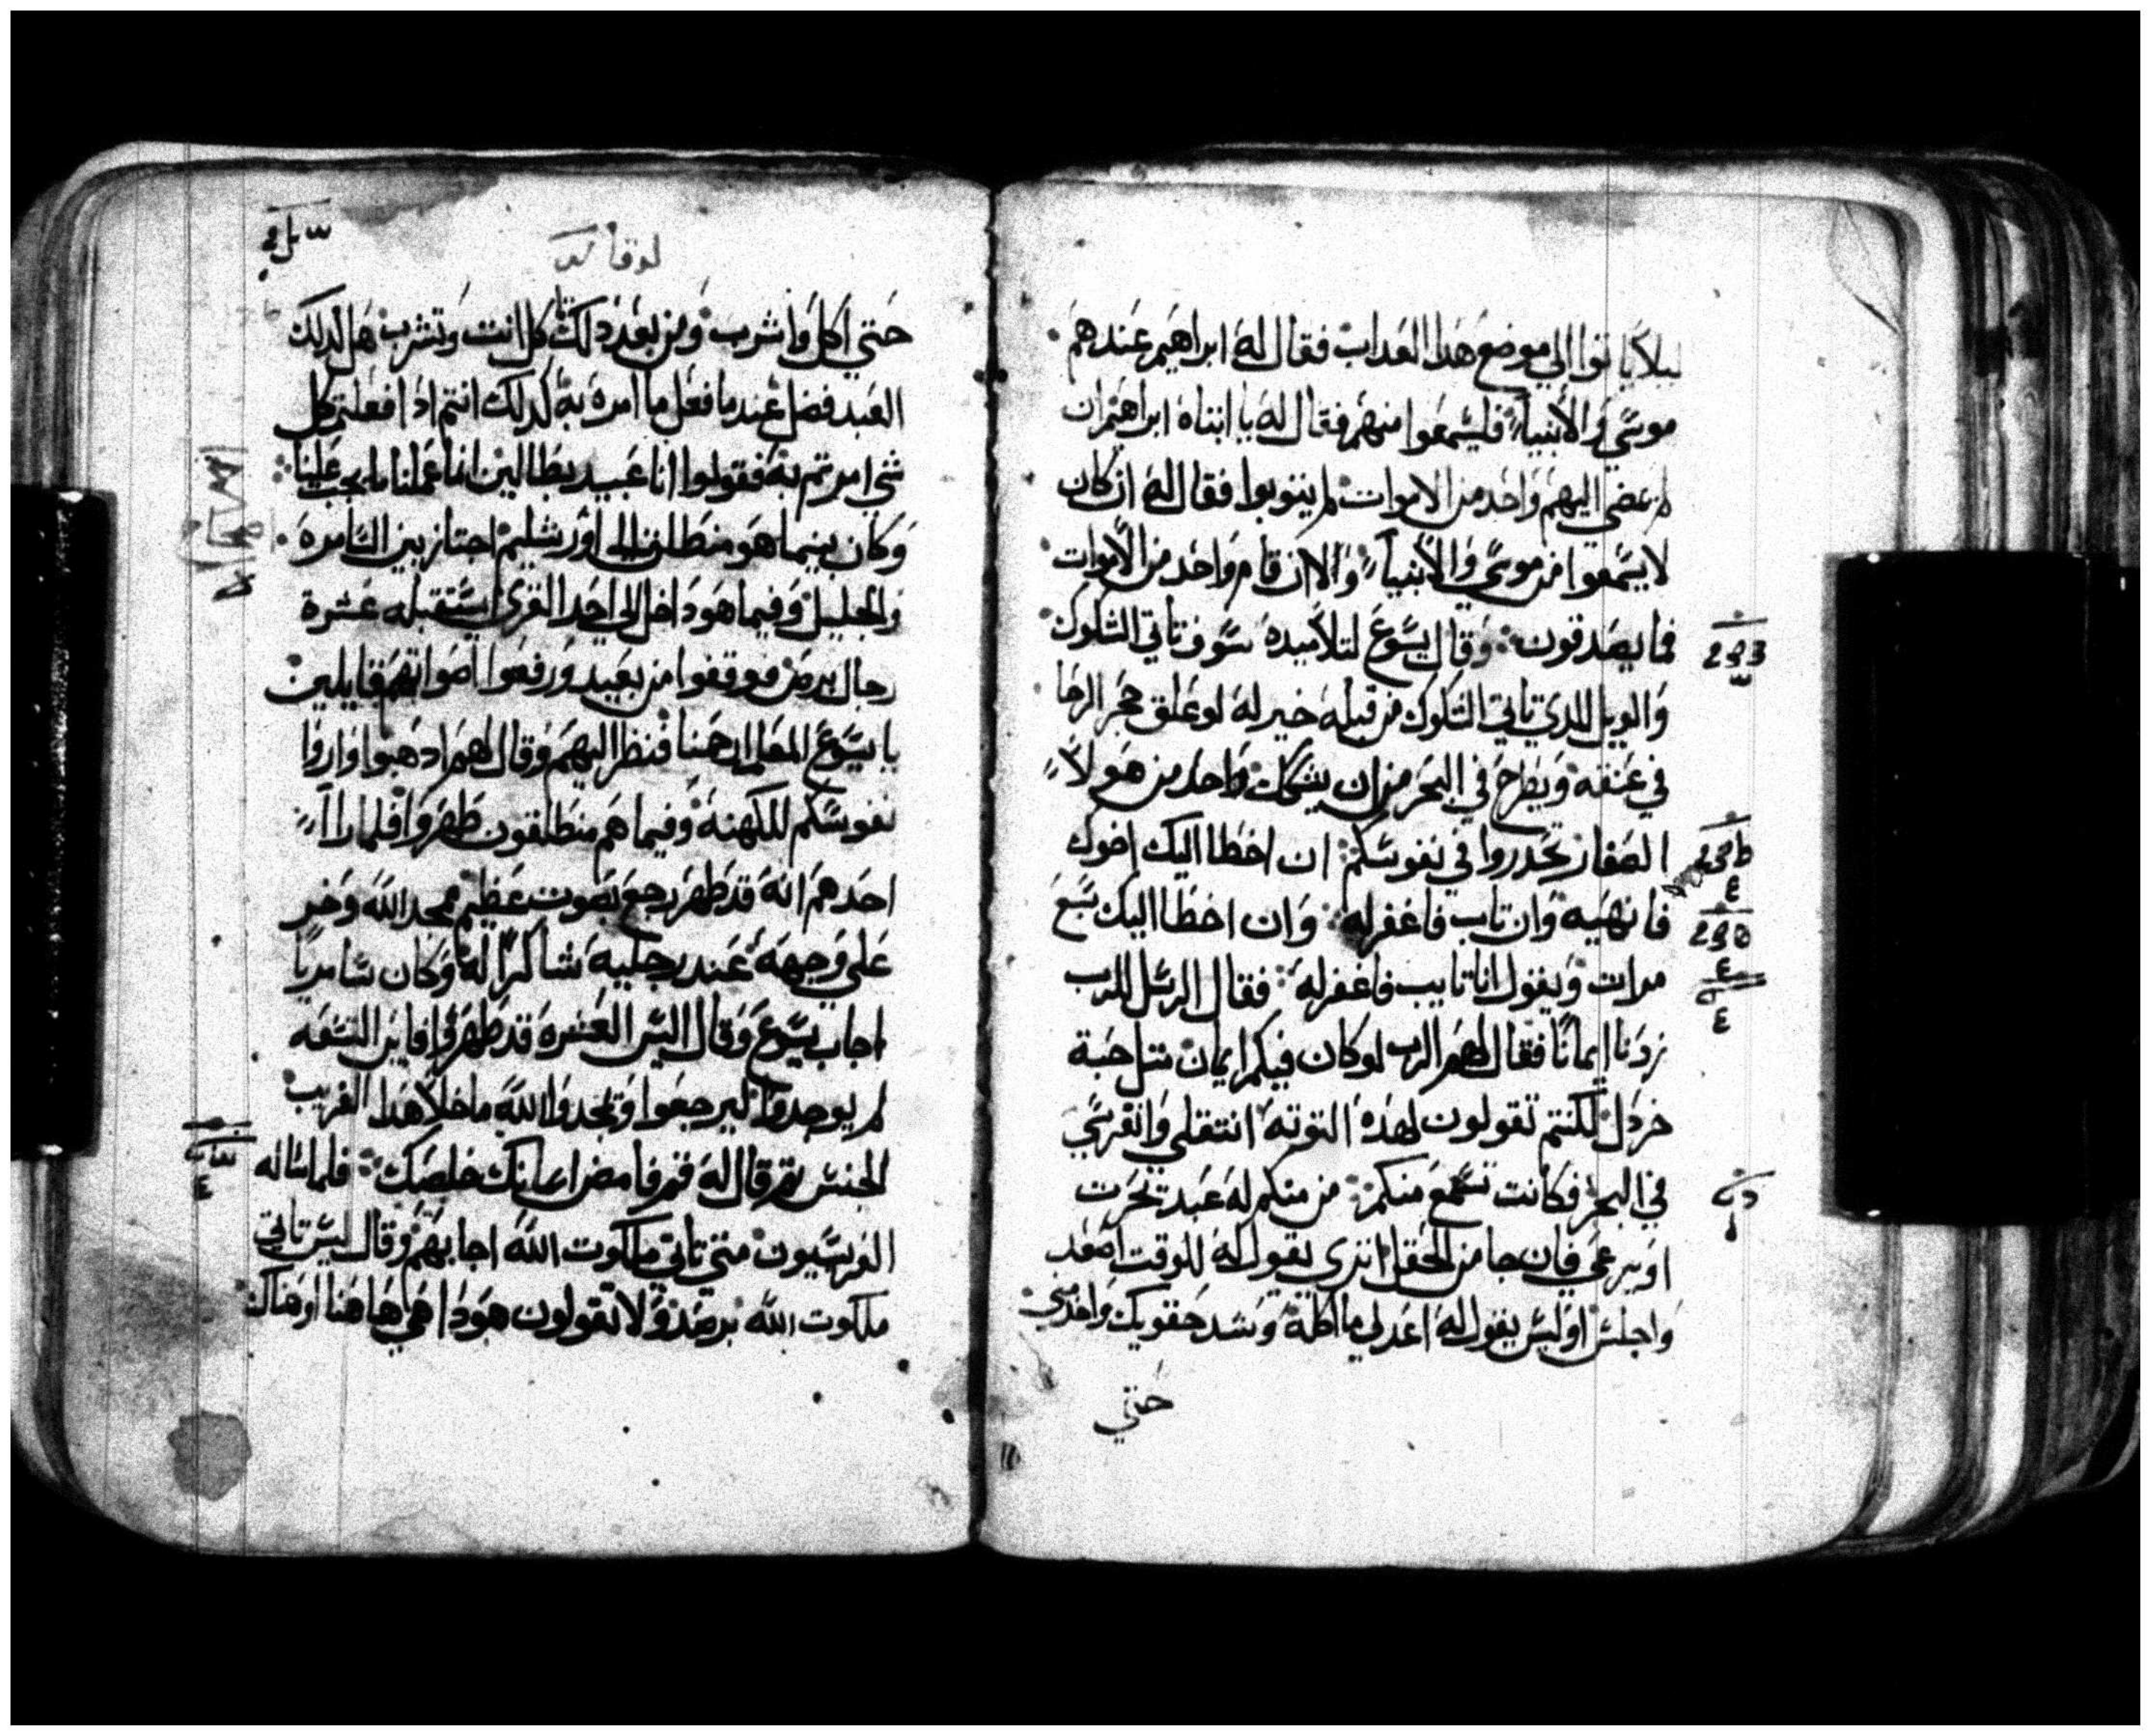 ليلا ياتوا الي موضع هدا العداب فقال له ابراهيم عندهم
موسي والانبياء فليسمعوا منهم فقال له يا ابتاه ابراهيم ان
لم يمضي اليهم واحد من الاموات لم يتوبوا فقال له ان كان
لا يسمعوا من موسي والانبياء والا ان قام واحد من الاموات
فما يصدقون وقال يسوع لتلاميده سوف تاتي الشكوك
والويل للدي تاتي الشكوك من قبله خير له لو علق حجر الرحا
في عنقه ويطرح في البحر من ان يشكك واحد من هولاء
الصغار تحدروا في نفوسكم ان اخطا اليك اخوك
فانهيه وان تاب فاغفر له وان اخطا اليك سبع
مرات ويقول انا تايب فاغفر له فقال الرسل للرب
زدنا ايمانا فقال لهم الرب لو كان فيكم ايمان مثل حبة
خردل لكنتم تقولون لهده التوته انتقلي وانغرسي
في البحر فكانت تسمع منكم من منكم له عبد يحرت
او يرعي فان جا من الحقل اتري يقول له للوقت اصعد
واجلس او ليس يقول له اعد لي ما اكله وشد حقويك واخدمني
حتي
لوقا
حتي اكل واشرب ومن بعد دلك كل انت وتشرب هل لدلك
العبد فضل عندما فعل ما امره به كدلك انتم ادا فعلتم كل
شي امرتم به فقولوا انا عبيد بطالين انما عملنا ما يجب علينا
وكان بينما هو منطلق الي اورشليم اجتاز بين السامره
والجليل وفيما هو داخل الي احدا القري استقبله عشرة
رجال برص فوقفوا من بعيد ورفعوا اصواتهم قايلين
يا يسوع المعلم ارحمنا فنظر اليهم وقال لهم ادهبوا واروا
نفوسكم للكهنه وفيما هم منطلقون طهروا فلما راا
احدهم انه قد طهر رجع بصوت عظيم يمجد الله وخر
علي وجهه عند رجليه شاكرا له وكان سامريا
اجاب يسوع وقال اليس العشره قد طهروا فاين التسعه
لم يوجدوا ليرجعوا ويمجدوا الله ما خلا هدا الغريب
الجنس تم قال له قم فامض ايمانك خلصك فلما ساله
الفريسيون متي تاتي ملكوت الله اجابهم وقال ليس تاتي
ملكوت الله برصد ولا تقولون هودا هي هاهنا او هناك